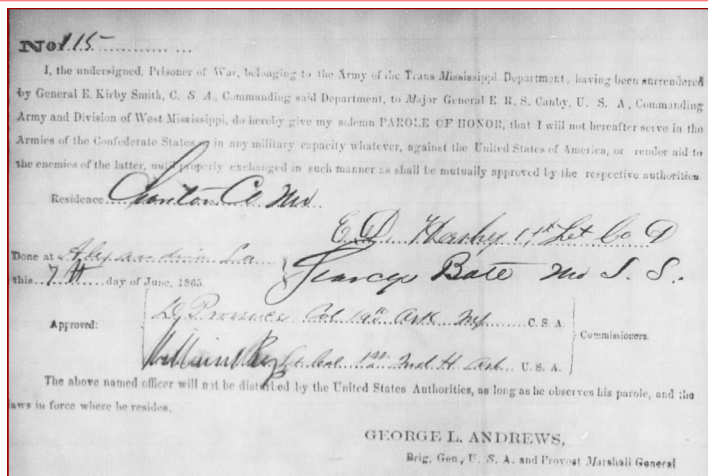 No. 115
I, the undersigned, Prisoner of War, belonging to the Army of the Trans Mississippi Department, having been surrendered
by General E. Kirby Smith, C. S. A., Commanding said Department, to Major General E. R. S. Canby, U. S. A., Commanding
Army and Division of West Mississippi, do hereby give my solemn PAROLE OF HONOR, that I will not hereafter serve in the
Armies of the Confederate States, in any military capacity whatever, against the United States of America, or render aid to
the enemies of the latter, until properly exchanged in such manner as shall be mutually approved by the respective authorities.
Residence Co Mo
E. D. 1st Lt Co D
Done at Alexandria La
this 7th day of June, 1865.
Batt Mo S. S.
Approved:
Col Ark C. S. A.
Commissioners.
Lt Col 1st U. S. A.
The above named officer will not be disturbed by the United States Authorities, as long as he observes his parole, and the
laws in force where he resides.
GEORGE L. ANDREWS,
Brig. Gen., U. S. A. and Provost Marshall General